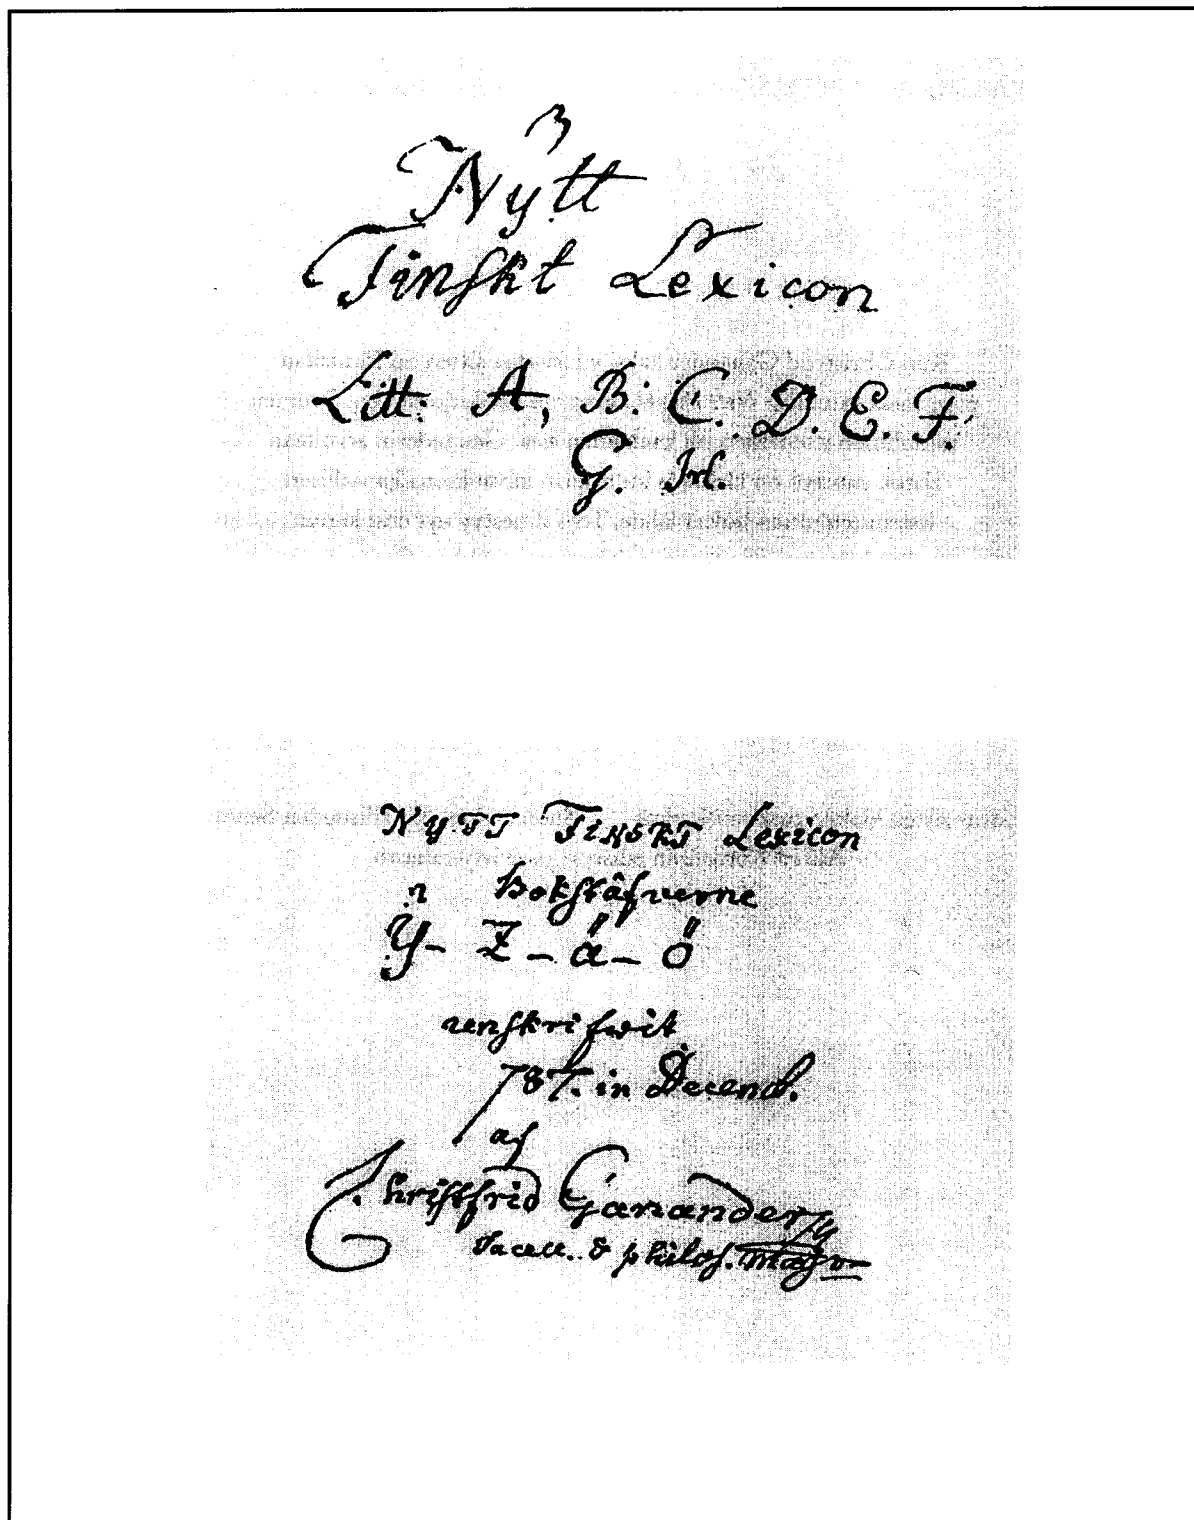 Nytt
Finskt Lexicon
Litt: A, B. C. D. E. F.
G. H.
NYTT FINSKT Lexicon
i Bokstäfverne
Y - Z - ä - ö
renskrifwit
1787. in Decemb.
af
Christfrid Ganander
Sacell. & philos. Mag